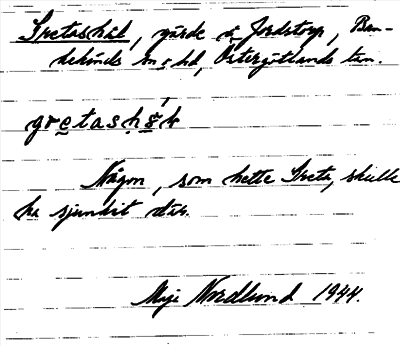 Gretashål, gärde å Jordstorp, Ban-
kekinds sn o hd, Östergötlands län.
gretashå̄l
Någon, som hette Greta, skulle
ha sjunkit där.
Maja Nordlund 1944.